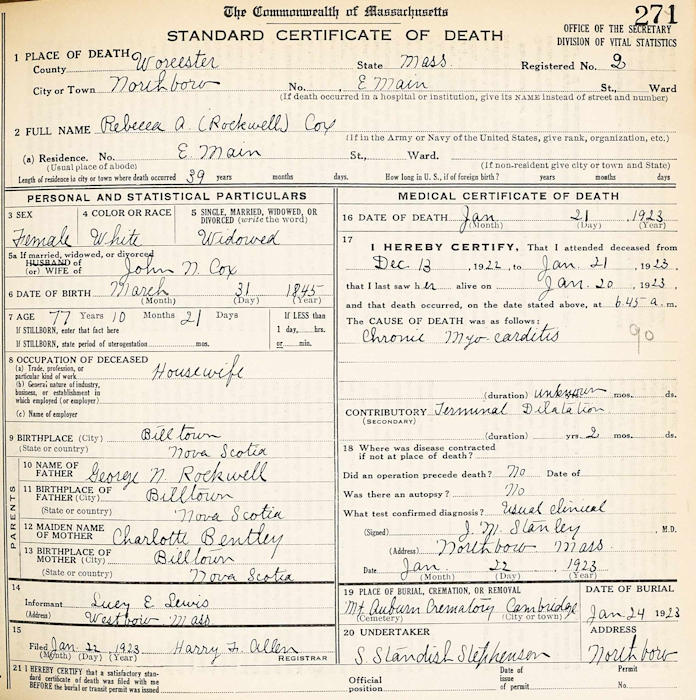 The Commonwealth of Massachusetts
271
STANDARD CERTIFICATE OF DEATH
OFFICE OF THE SECRETARY
DIVISION OF VITAL STATISTICS
1 PLACE OF DEATH
County Worcester State Mass. Registered No. 2
City or Town Northboro No. E Main St., Ward
(If death occurred in a hospital or institution, give its NAME instead of street and number)
2 FULL NAME Rebecca A. (Rockwell) Cox
(If in the Army or Navy of the United States, give rank, organization, etc.)
(a) Residence. No. E. Main St., Ward.
(Usual place of abode) (If non-resident give city or town and State)
Length of residence in city or town where death occurred 39 years months days. How long in U. S., if of foreign birth? years months days
PERSONAL AND STATISTICAL PARTICULARS
3 SEX 4 COLOR OR RACE 5 SINGLE, MARRIED, WIDOWED, OR
DIVORCED (write the word)
Female White Widowed
5a If married, widowed, or divorced
HUSBAND of
(or) WIFE of John N. Cox
6 DATE OF BIRTH March 31 1845
(Month) (Day) (Year)
7 AGE 77 Years 10 Months 21 Days If LESS than
If STILLBORN, enter that fact here 1 day, hrs.
If STILLBORN, state period of uterogestation mos. or min.
8 OCCUPATION OF DECEASED
(a) Trade, profession, or
particular kind of work Housewife
(b) General nature of industry,
business, or establishment in
which employed (or employer)
(c) Name of employer
9 BIRTHPLACE (City) Billtown
(State or country) Nova Scotia
PARENTS
10 NAME OF
FATHER George N. Rockwell
11 BIRTHPLACE OF
FATHER (City) Billtown
(State or country) Nova Scotia
12 MAIDEN NAME
OF MOTHER Charlotte Bentley
13 BIRTHPLACE OF
MOTHER (City) Billtown
(State or country) Nova Scotia
14
Informant Lucy E. Lewis
(Address) Westboro Mass
15
Filed Jan. 22, 1923 Harry F. Allen
(Month) (Day) (Year) REGISTRAR
MEDICAL CERTIFICATE OF DEATH
16 DATE OF DEATH Jan. 21, 1923
(Month) (Day) (Year)
17
I HEREBY CERTIFY, That I attended deceased from
Dec 13, 1922, to Jan. 21, 1923,
that I last saw her alive on Jan. 20, 1923,
and that death occurred, on the date stated above, at 6.45 a. m.
The CAUSE OF DEATH was as follows:
Chronic Myo-carditis 90
(duration) unknown mos. ds.
CONTRIBUTORY Terminal Dilatation
(SECONDARY)
(duration) yrs. 2 mos. ds.
18 Where was disease contracted
if not at place of death?
Did an operation precede death? No Date of
Was there an autopsy? No
What test confirmed diagnosis? Usual clinical
(Signed) J. M. Stanley, M.D.
(Address) Northboro Mass.
Date Jan. 22, 1923
(Month) (Day) (Year)
19 PLACE OF BURIAL, CREMATION, OR REMOVAL DATE OF BURIAL
Mt. Auburn Crematory Cambridge Jan 24 1923
(Cemetery) (City or town)
20 UNDERTAKER ADDRESS
S. Standish Stephenson Northboro
21 I HEREBY CERTIFY that a satisfactory stan-
dard certificate of death was filed with me
BEFORE the burial or transit permit was issued
Official
position
Date of
issue
of permit
Permit
No.